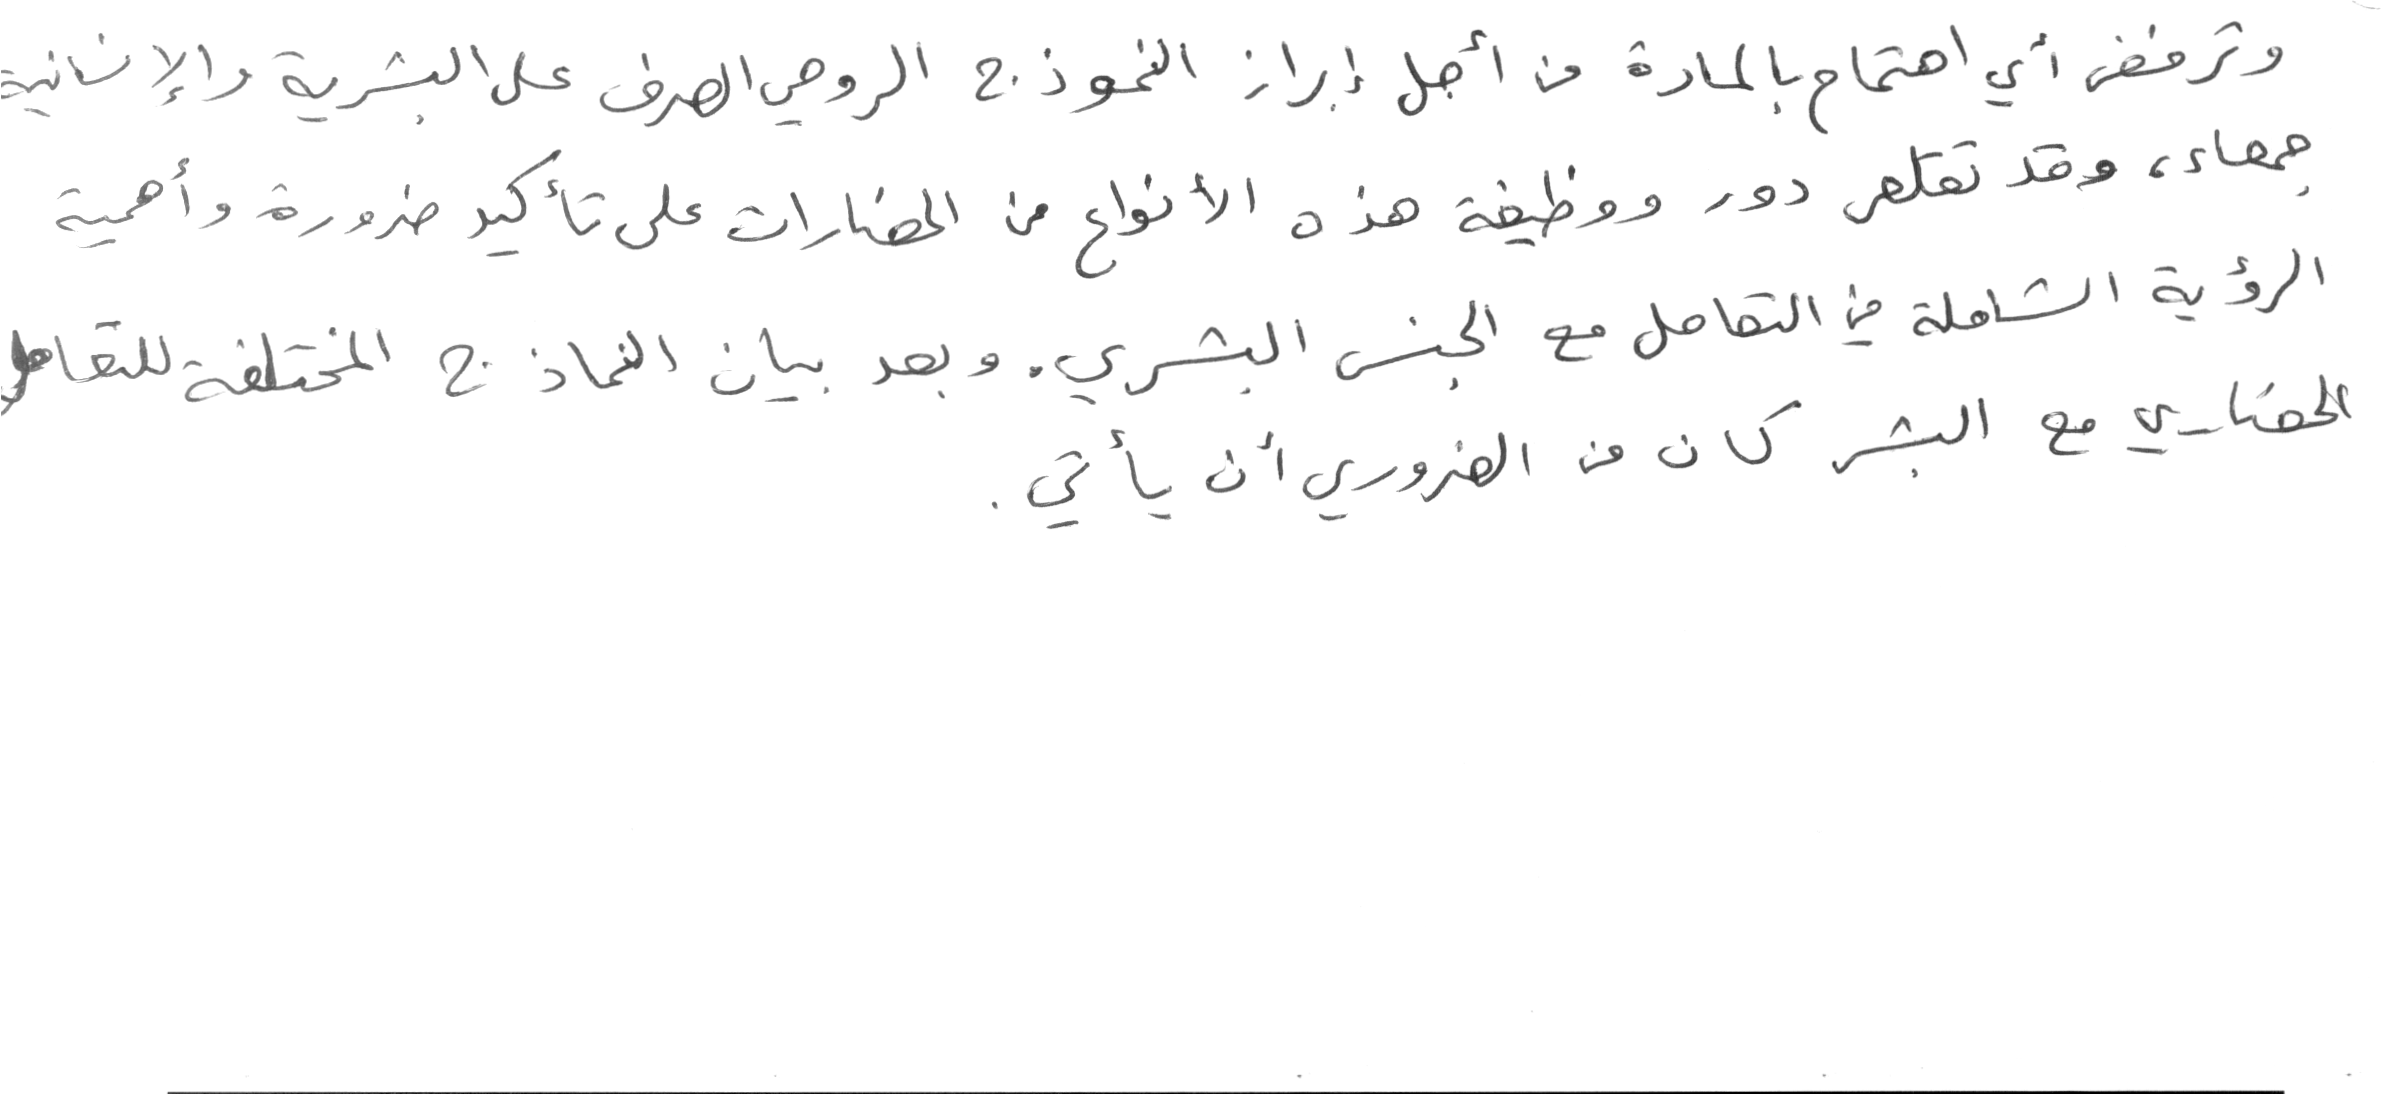 وترفض أي اهتمام بالمادة من أجل إبراز النموذج الروحي الصرف على البشرية والإنسانية
جمعاء، وقد تقتصر دور ووظيفة هذه الأنواع من الحضارات على تأكيد ضرورة وأهمية
الرؤية الشاملة في التعامل مع الجنس البشري. وبعد بيان النماذج المختلفة للتعامل
الحضاري مع البشر كان من الضروري أن يأتي.